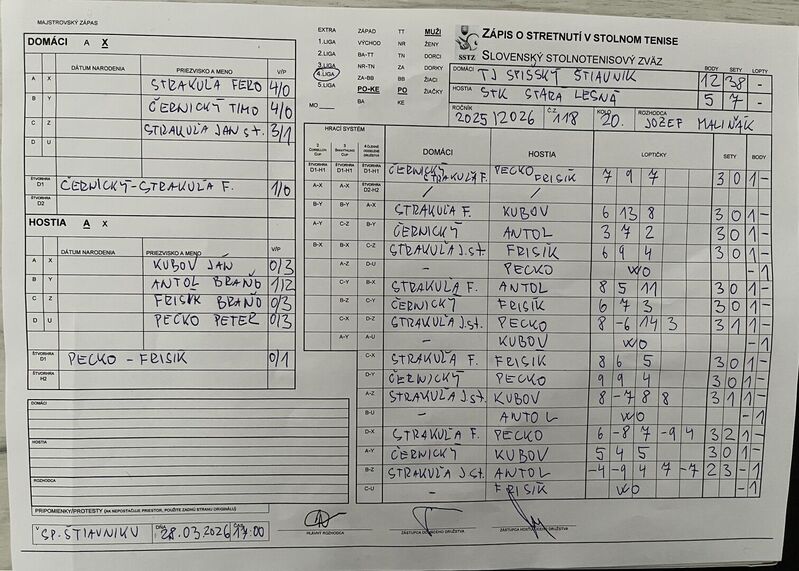 MAJSTROVSKÝ ZÁPAS
DOMÁCI A X
DÁTUM NARODENIA PRIEZVISKO A MENO V/P
A X STRAKUĽA FERO 4/0
B Y ČERNICKÝ TIMO 4/0
C Z STRAKUĽA JÁN st. 3/1
D U
ŠTVORHRA D1 ČERNICKÝ-STRAKUĽA F. 1/0
ŠTVORHRA D2
HOSTIA A X
DÁTUM NARODENIA PRIEZVISKO A MENO V/P
A X KUBOV JÁN 0/3
B Y ANTOL BRAŇO 1/2
C Z FRISIK BRAŇO 0/3
D U PECKO PETER 0/3
ŠTVORHRA D1 PECKO - FRISIK 0/1
ŠTVORHRA H2
DOMÁCI
HOSTIA
ROZHODCA
PRIPOMIENKY/PROTESTY (AK NEPOSTAČUJE PRIESTOR, POUŽITE ZADNÚ STRANU ORIGINÁLU)
V SP. ŠTIAVNIKU DŇA 28.03.2026 ČAS 17:00
EXTRA ZÁPAD TT MUŽI
1.LIGA VÝCHOD NR ŽENY
2.LIGA BA-TT TN DORCI
3.LIGA NR-TN ZA DORKY
4.LIGA ZA-BB BB ŽIACI
5.LIGA PO-KE PO ŽIAČKY
MO BA KE
ZÁPIS O STRETNUTÍ V STOLNOM TENISE
SSTZ SLOVENSKÝ STOLNOTENISOVÝ ZVÄZ
BODY SETY LOPTY
DOMÁCI TJ SPIŠSKÝ ŠTIAVNIK 12 38 -
HOSTIA STK STARÁ LESNÁ 5 7 -
ROČNÍK 2025/2026 Č.Z. 118 KOLO 20. ROZHODCA JOZEF MALIŇÁK
HRACÍ SYSTÉM
DOMÁCI HOSTIA LOPTIČKY SETY BODY
D1-H1 D1-H1 ŠTVORHRA D1-H1 ČERNICKÝ STRAKUĽA F. PECKO FRISIK 7 9 7 3 0 1 -
A-X A-X ŠTVORHRA D2-H2 / /
B-Y B-Y A-X STRAKUĽA F. KUBOV 6 13 8 3 0 1 -
A-Y C-Z B-Y ČERNICKÝ ANTOL 3 7 2 3 0 1 -
B-X B-X C-Z STRAKUĽA J.st. FRISIK 6 9 4 3 0 1 -
A-Z D-U - PECKO WO - 1
C-Y B-X STRAKUĽA F. ANTOL 8 5 11 3 0 1 -
B-Z C-Y ČERNICKÝ FRISÍK 6 7 3 3 0 1 -
C-X D-Z STRAKUĽA J.st. PECKO 8 -6 14 3 3 1 1 -
A-Y A-U - KUBOV WO - 1
C-X STRAKUĽA F. FRISIK 8 6 5 3 0 1 -
D-Y ČERNICKÝ PECKO 9 9 4 3 0 1 -
A-Z STRAKUĽA J.st. KUBOV 8 -7 8 8 3 1 1 -
B-U - ANTOL WO - 1
D-X STRAKUĽA F. PECKO 6 -8 7 -9 4 3 2 1 -
A-Y ČERNICKÝ KUBOV 5 4 5 3 0 1 -
B-Z STRAKUĽA J.st. ANTOL -4 -9 4 7 -7 2 3 - 1
C-U - FRISÍK WO - 1
HLAVNÝ ROZHODCA ZÁSTUPCA DOMÁCEHO DRUŽSTVA ZÁSTUPCA HOSŤUJÚCEHO DRUŽSTVA